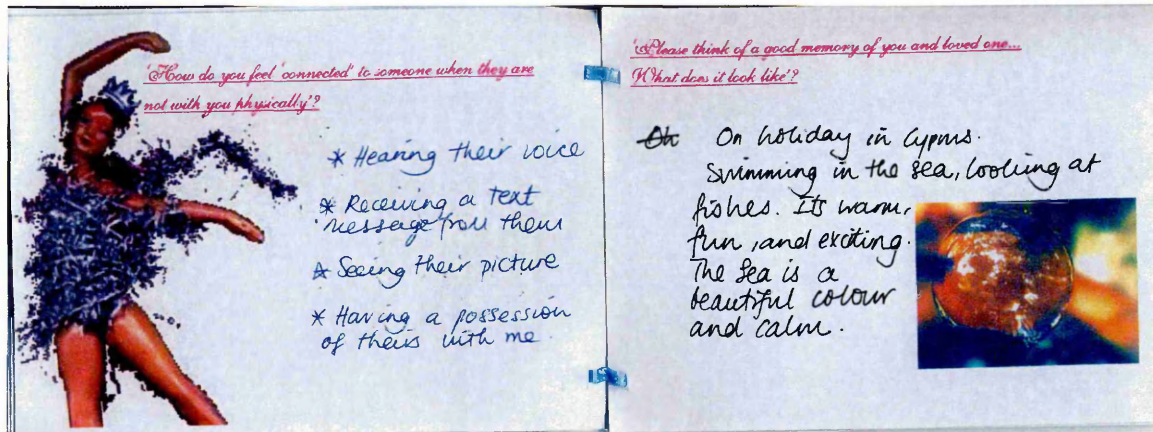 'How do you feel 'connected' to someone when they are
not with you physically'?
* Hearing their voice
* Receiving a text
message from them
* Seeing their picture
* Having a possession
of theirs with me.
'Please think of a good memory of you and loved one...
What does it look like'?
Oh On holiday in Cyprus.
Swimming in the sea, looking at
fishes. Its warm,
fun, and exciting.
The sea is a
beautiful colour
and calm.